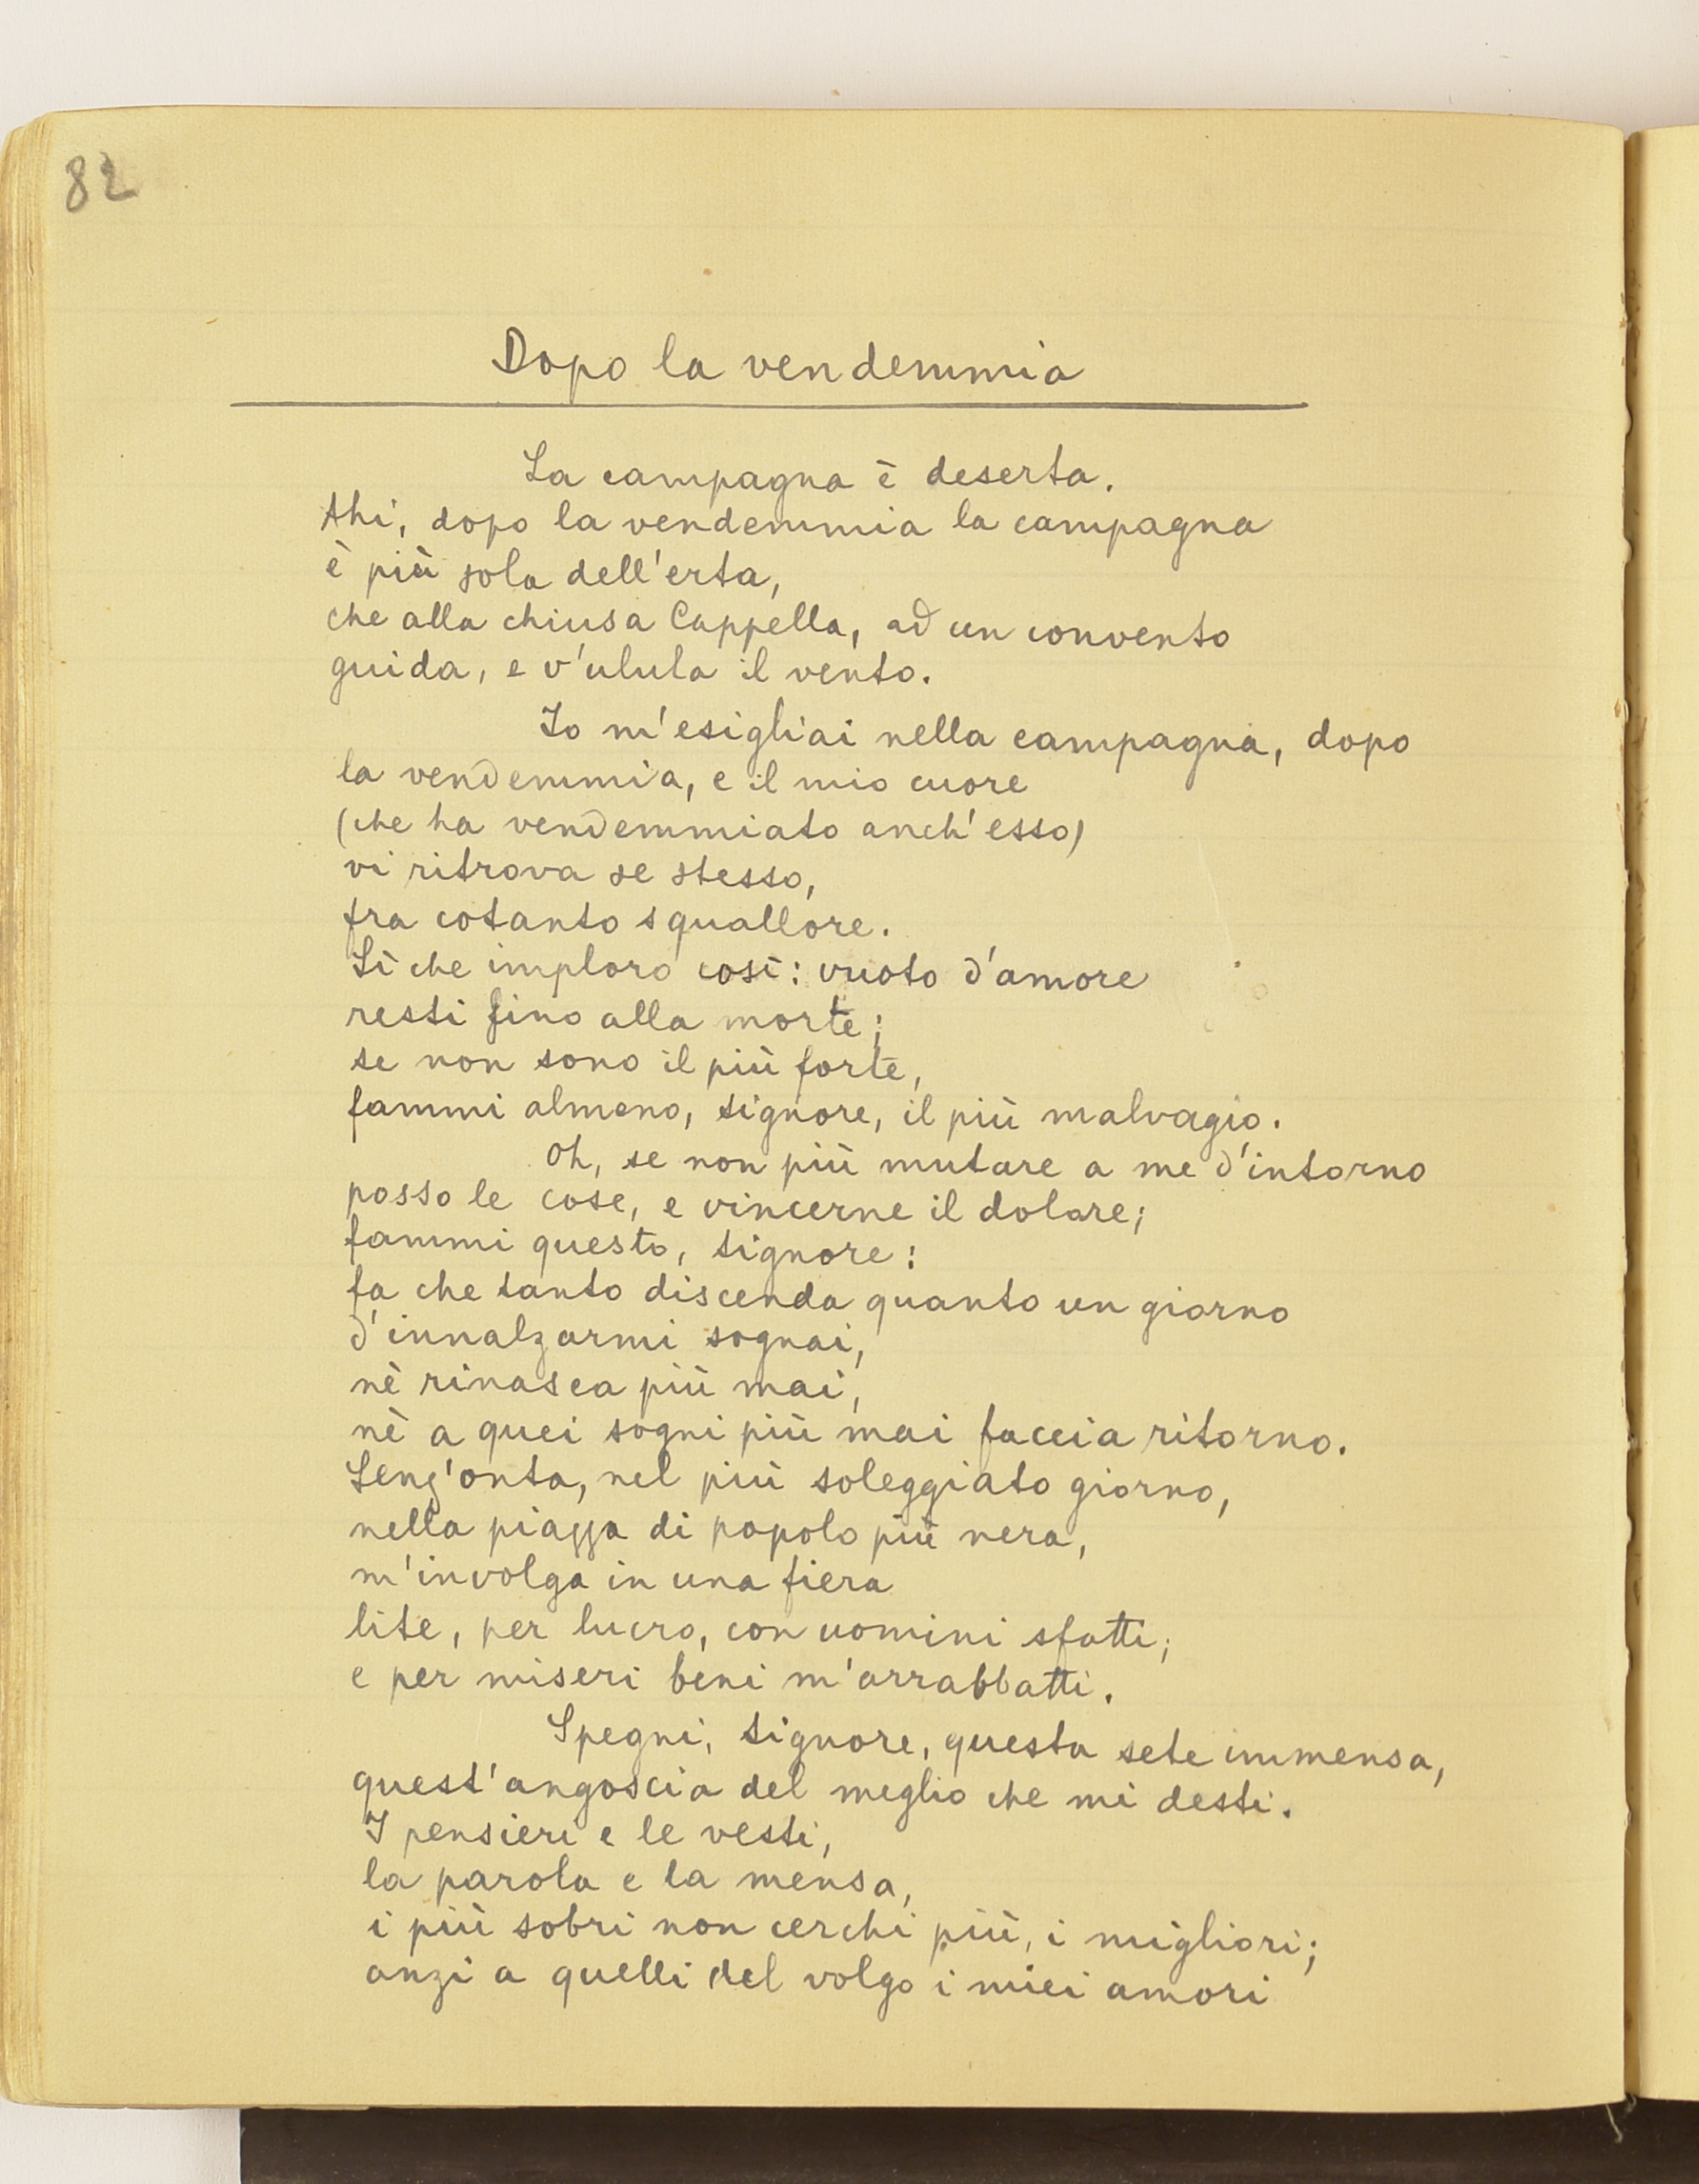 82
Dopo la vendemmia
La campagna è deserta.
Ahi, dopo la vendemmia la campagna
è più sola dell'erta,
che alla chiusa Cappella, ad un convento
guida, e v'ulula il vento.
Io m'esigliai nella campagna, dopo
la vendemmia, e il mio cuore
(che ha vendemmiato anch'esso)
vi ritrova se stesso,
fra cotanto squallore.
Sì che imploro così: vuoto d'amore
resti fino alla morte;
se non sono il più forte,
fammi almeno, Signore, il più malvagio.
Oh, se non più mutare a me d'intorno
posso le cose, e vincerne il dolore;
fammi questo, Signore:
fa che tanto discenda quanto un giorno
d'innalzarmi sognai,
nè rinasca più mai,
nè a quei sogni più mai faccia ritorno.
Senz'onta, nel più soleggiato giorno,
nella piazza di popolo più nera,
m'involga in una fiera
lite, per lucro, con uomini sfatti;
e per miseri beni m'arrabbatti.
Spegni, Signore, questa sete immensa,
quest'angoscia del meglio che mi desti.
I pensieri e le vesti,
la parola e la mensa,
i più sobri non cerchi più, i migliori;
anzi a quelli del volgo i miei amori